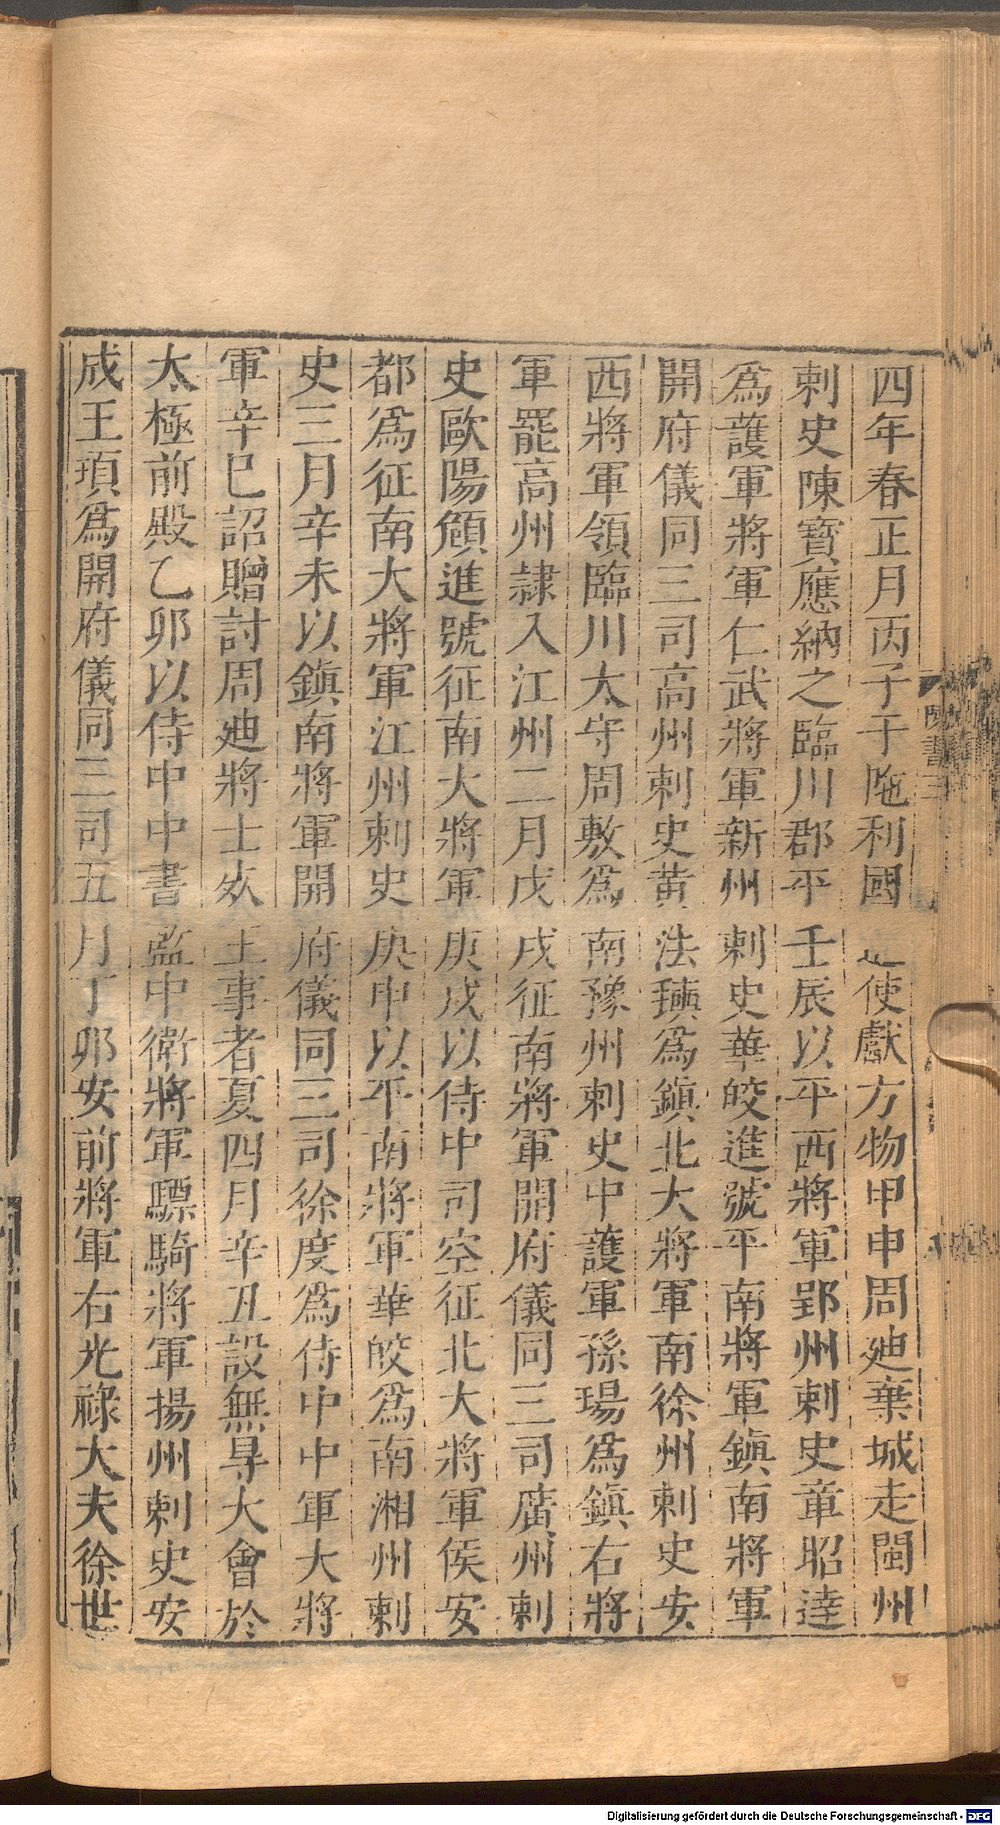 四年春正月丙子干陁利國遣使獻方物甲申周廸棄城走閩州
刺史陳寶應納之臨川郡平壬辰以平西將軍郢州刺史章昭達
爲護軍將軍仁武將軍新州刺史華皎進號平南將軍鎮南將軍
開府儀同三司高州刺史黄法𣰰爲鎮北大將軍南徐州刺史安
西將軍領臨川太守周敷爲南豫州刺史中護軍孫瑒爲鎮右將
軍罷高州隷入江州二月戊戌征南將軍開府儀同三司廣州刺
史歐陽頠進號征南大將軍庚戌以侍中司空征北大將軍侯安
都爲征南大將軍江州刺史庚申以平南將軍華皎爲南湘州刺
史三月辛未以鎮南將軍開府儀同三司徐度爲侍中中軍大將
軍辛巳詔贈討周廸將士死王事者夏四月辛丑設無㝵大會於
太極前殿乙卯以侍中中書監中衛將軍驃騎將軍揚州刺史安
成王頊爲開府儀同三司五月丁卯安前將軍右光祿大夫徐世
陳書三
Digitalisierung gefördert durch die Deutsche Forschungsgemeinschaft - DFG